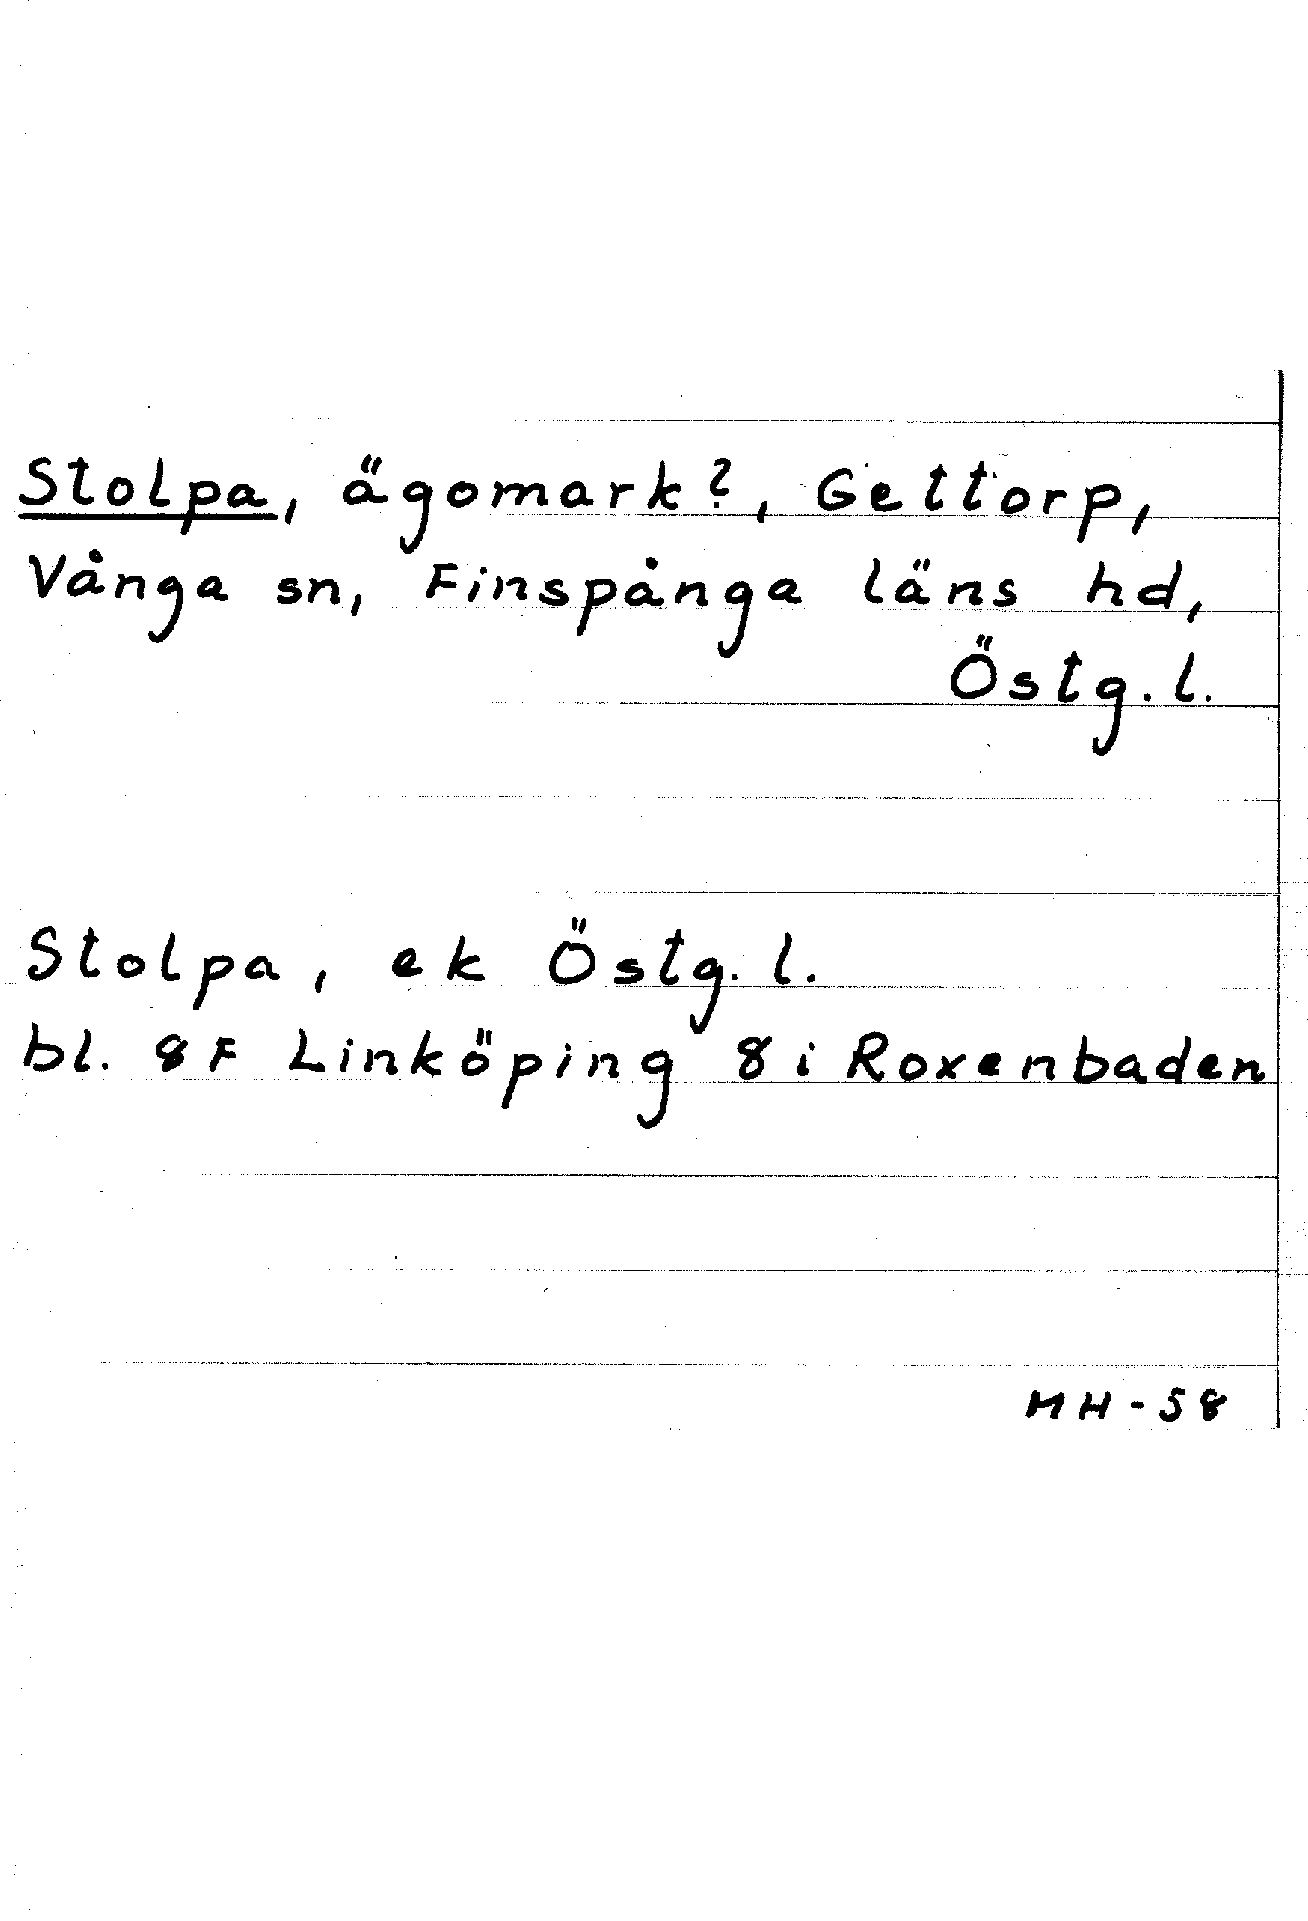 Stolpa, ägomark?, Gettorp,
Vånga sn, Finspånga läns hd,
Östg. l.
Stolpa, ek Östg. l.
bl. 8F Linköping 8i Roxenbaden
MH-58